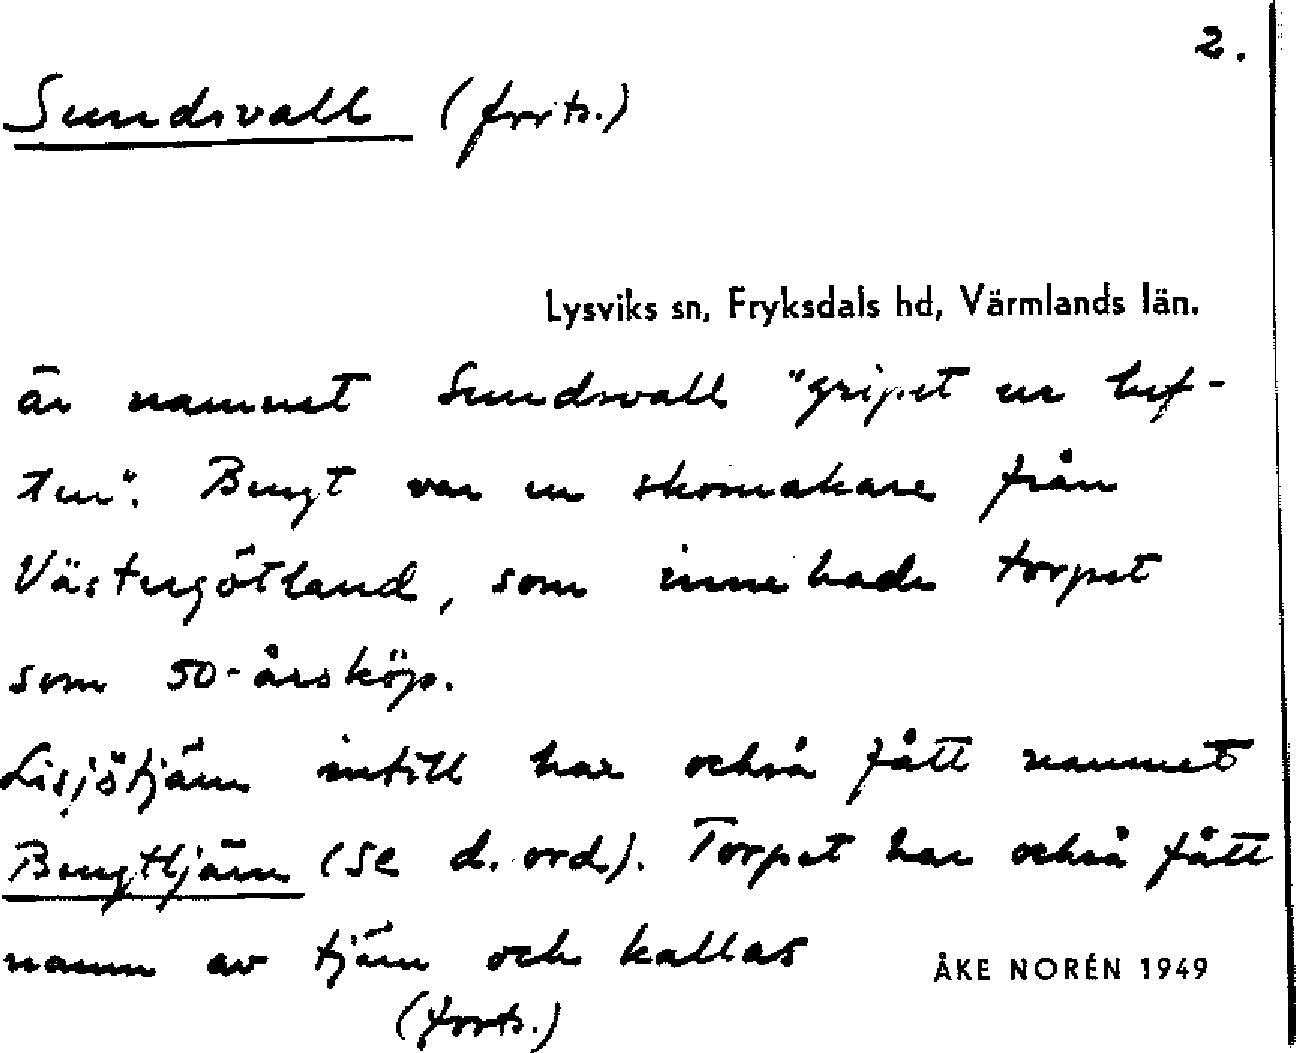 2.
Sundsvall (forts.)
Lysviks sn, Fryksdals hd, Värmlands län.
är namnet Sundsvall "gripet ur luf-
ten". Bengt var en skomakare från
Västergötland, som innehade torpet
som 50-årsköp.
Lisjötjärn intill har också fått namnet
Bengttjärn (se d. ord). Torpet har också fått
namn av tjärn och kallas
ÅKE NORÉN 1949
(forts.)